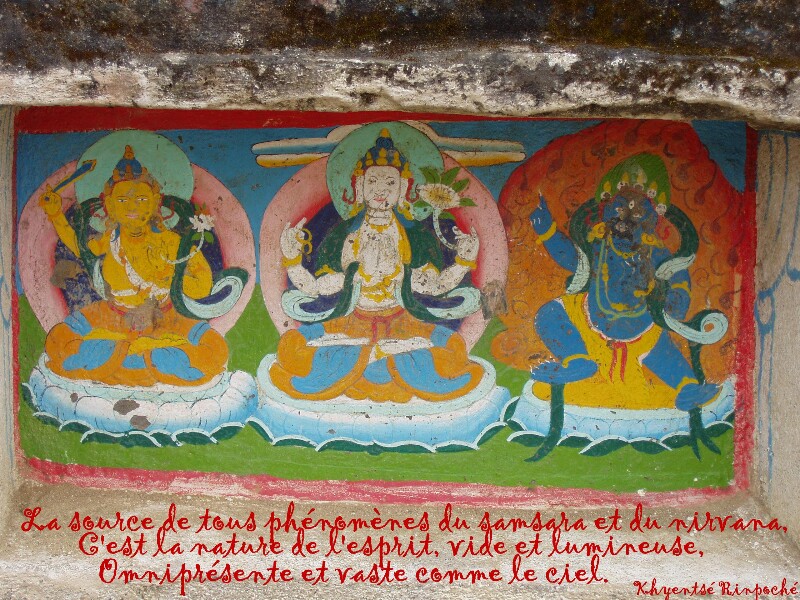 La source de tous phénomènes du samsara et du nirvana,
C'est la nature de l'esprit, vide et lumineuse,
Omniprésente et vaste comme le ciel.
Khyentsé Rinpoché